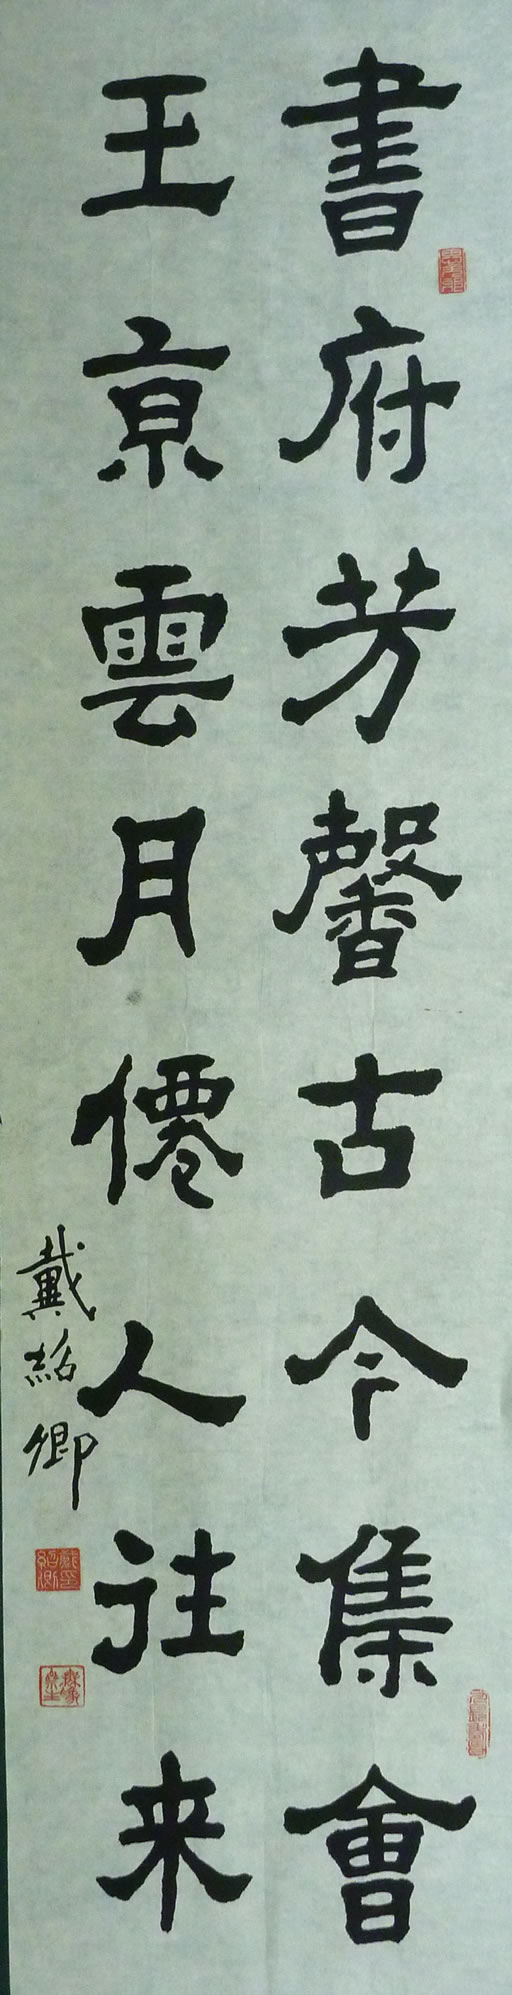 書府芳馨古今集會
王京雲月僊人往来
戴紹卿